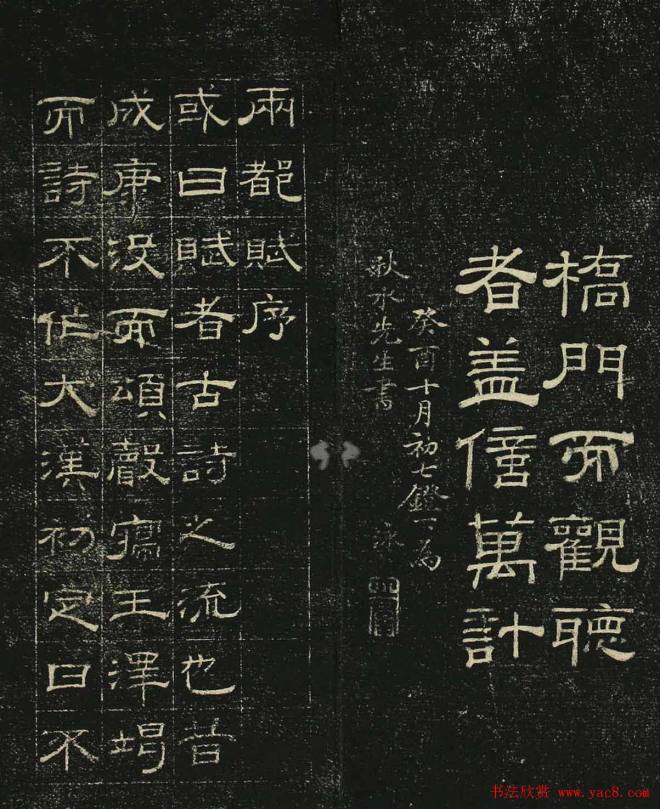 橋門而觀聽
者盖億萬計
癸酉十月初七鐙下為
秋水先生書 泳
兩都賦序
或曰賦者古詩之流也昔
成康没而頌聲寢王澤竭
而詩不作大漢初定日不
书法欣赏 www.yac8.com